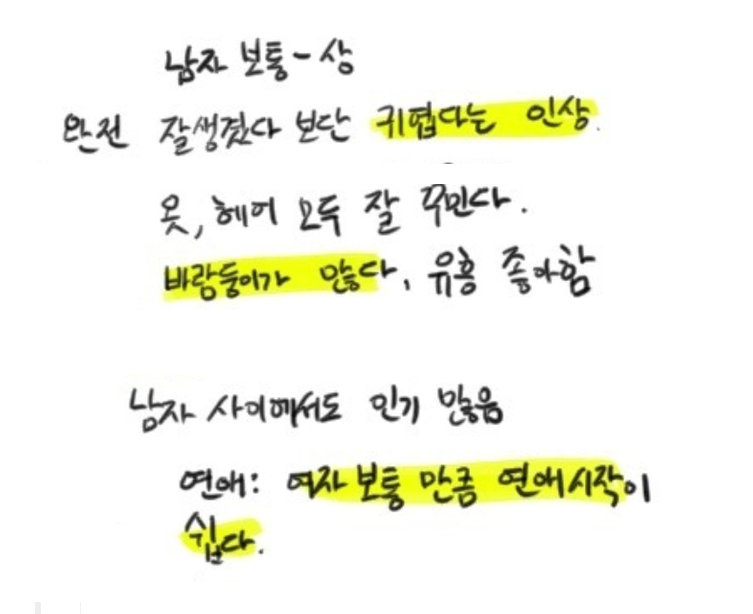 남자 보통-상
완전 잘생겼다 보단 귀엽다는 인상.
옷, 헤어 모두 잘 꾸민다.
바람둥이가 많다, 유흥 좋아함
남자 사이에서도 인기 많음
연애: 여자 보통 만큼 연애시작이
쉽다.